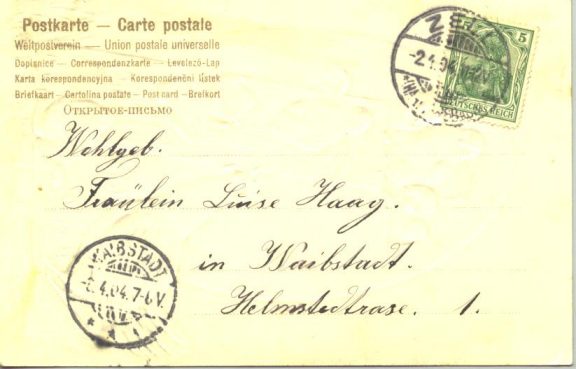 Postkarte — Carte postale
Weltpostverein — Union postale universelle
Dopisnice — Correspondenzkarte — Levelező-Lap
Karta korespondencyjna — Korespondenční lístek
Briefkaart — Cartolina postale — Post card — Brefkort
ОТКРЫТОЕ-ПИСЬМО
5
DEUTSCHES REICH
Wohlgeb.
Fräulein Luise Haag.
in Waibstadt.
Helmstedtrase. 1.
WAIBSTADT
4.04.7-8V.